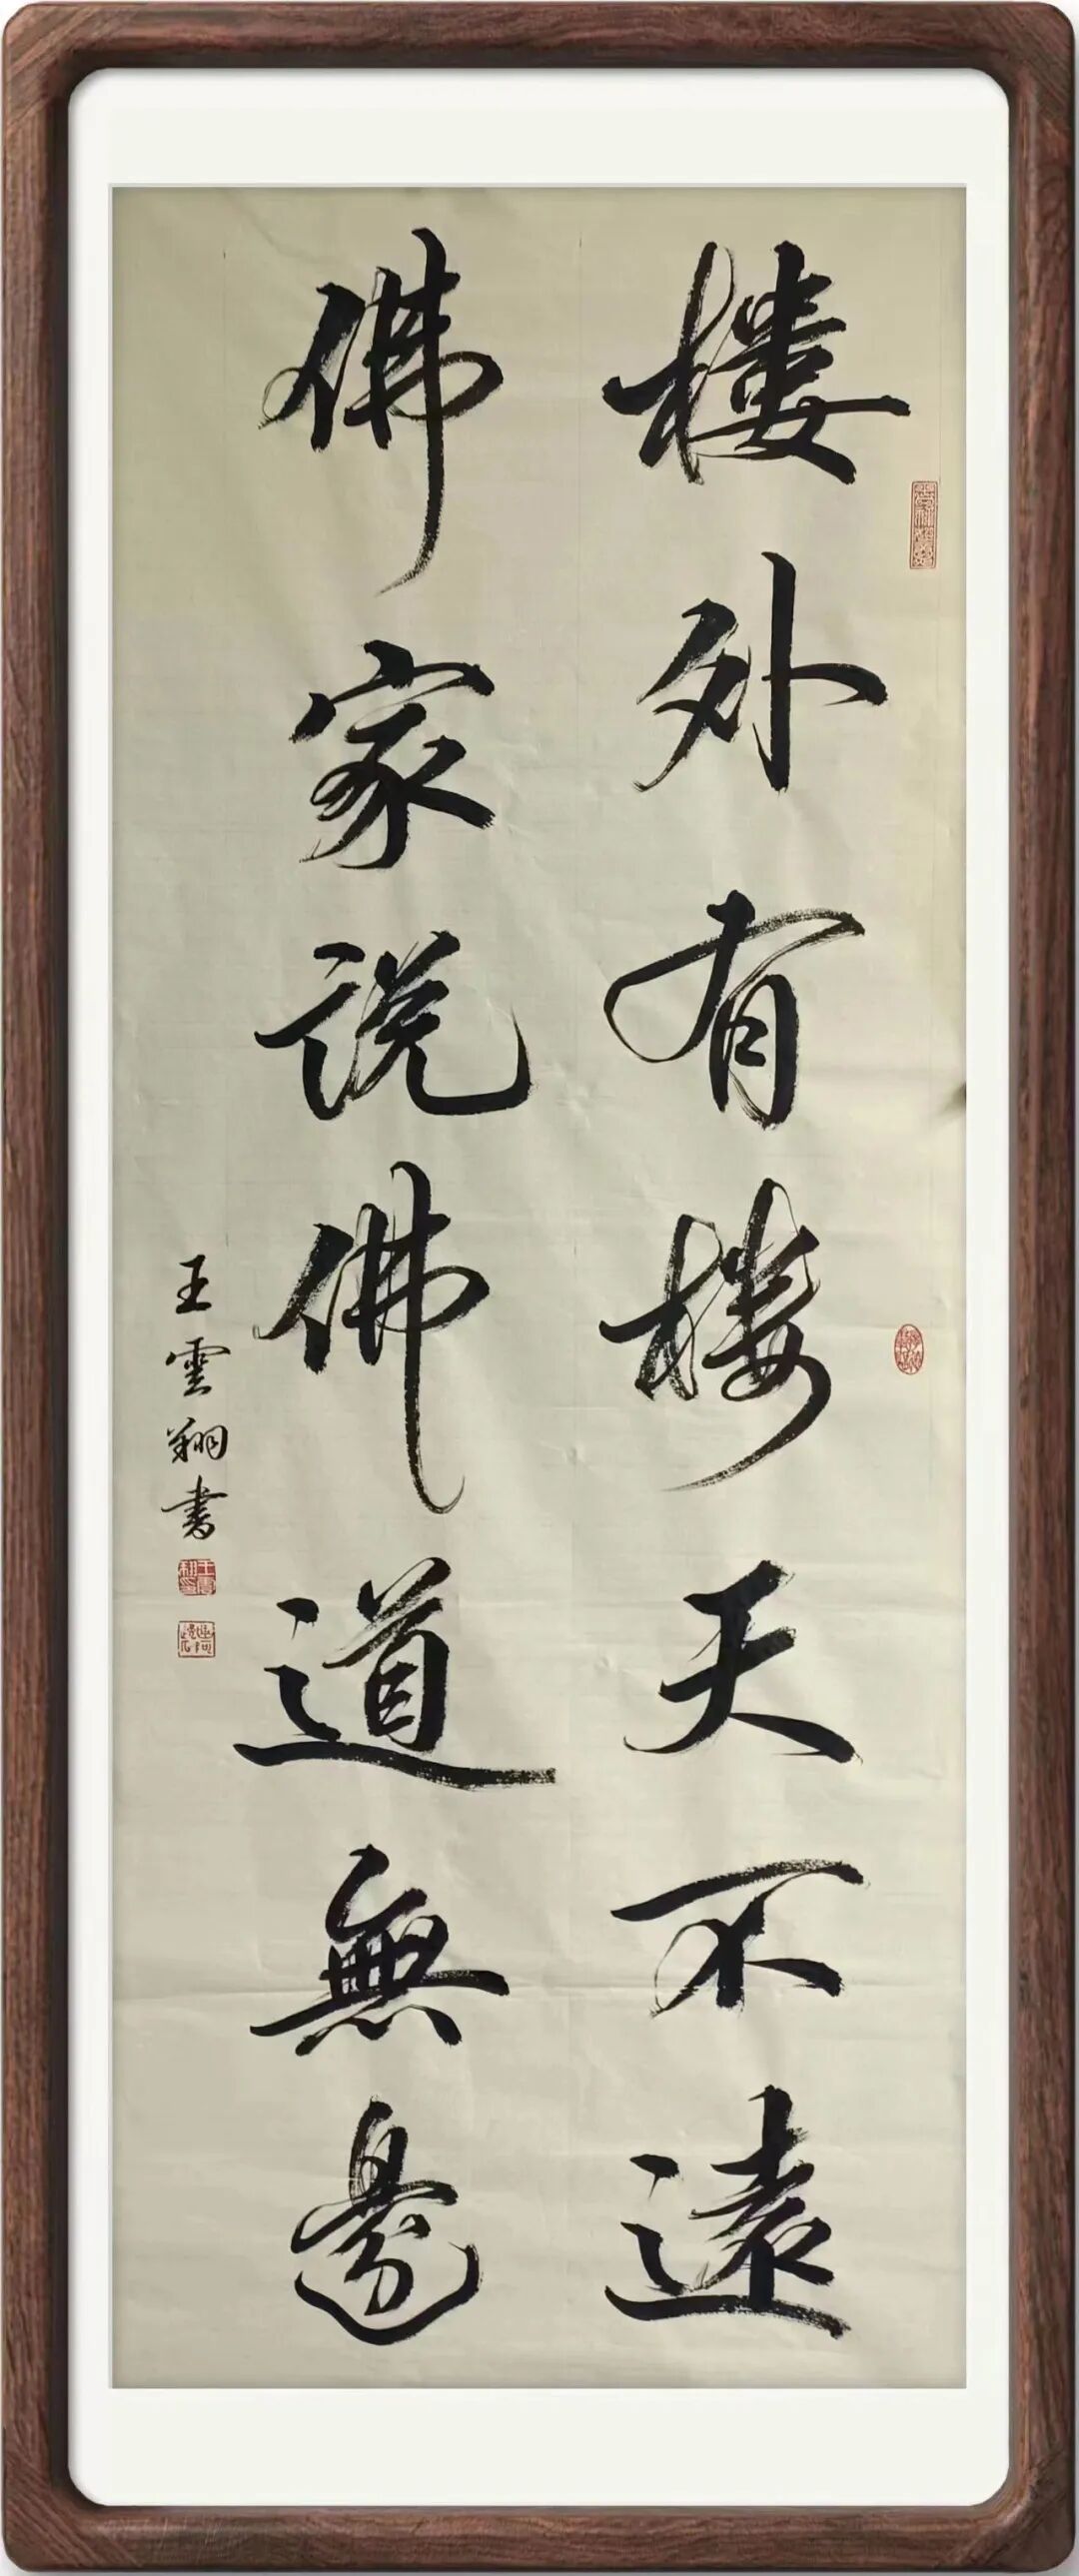 楼外有楼天不遠
佛家説佛道無邊
王雲翔書